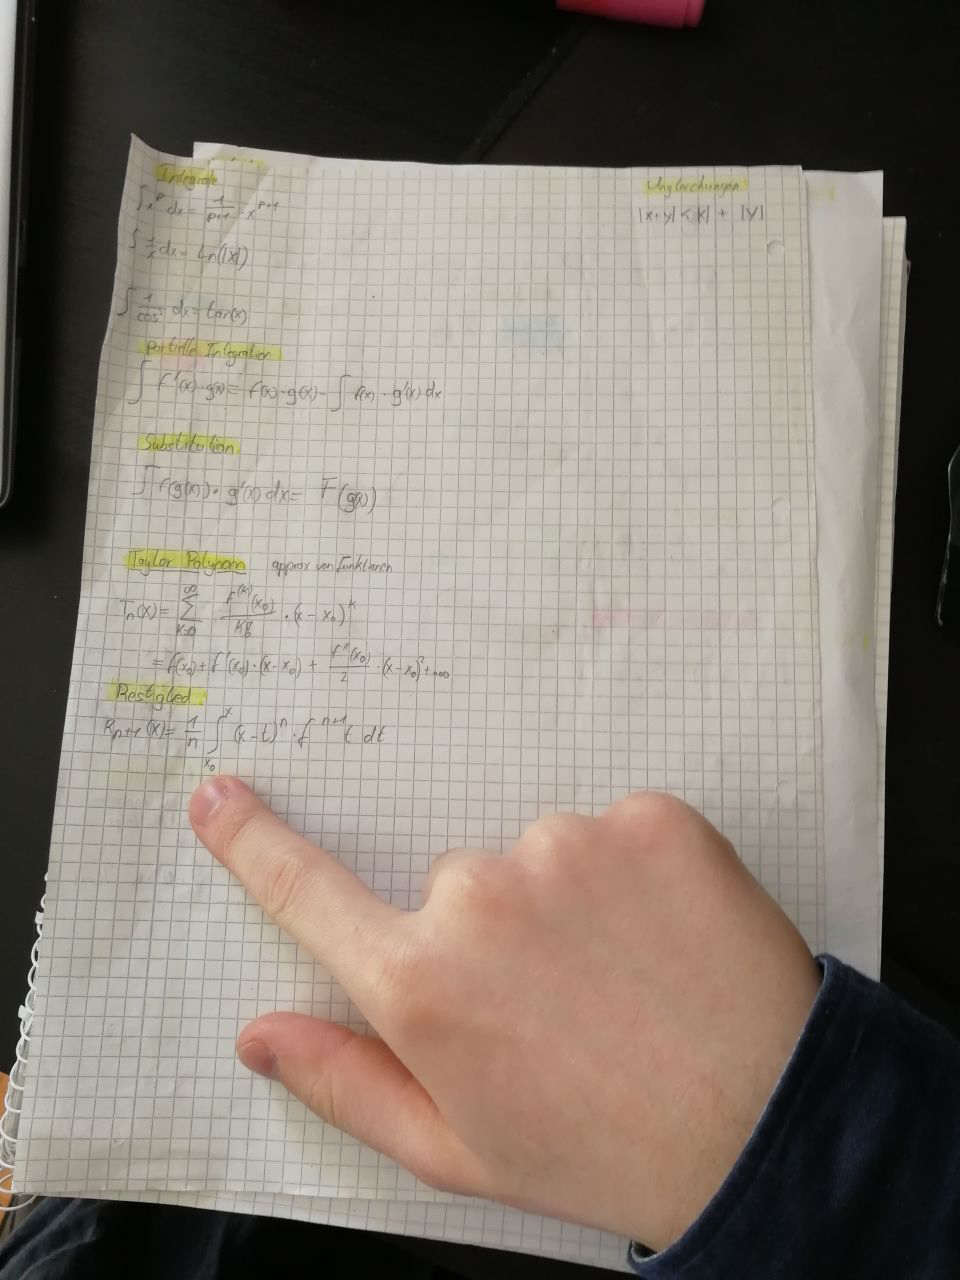 Integrale
∫ x^p dx = 1/(p+1) · x^(p+1)
∫ 1/x dx = ln(|x|)
∫ 1/cos² dx = tan(x)
partielle Integration
∫ f'(x)·g(x) = f(x)·g(x) - ∫ f(x) · g'(x) dx
Substitution
∫ f(g(x)) · g'(x) dx = F(g(x))
Taylor Polynom approx von Funktionen
Tn(x) = ∑ k=0 ∞ f^(k)(x₀)/k! · (x - x₀)^k
= f(x₀) + f'(x₀) · (x - x₀) + f''(x₀)/2 · (x - x₀)² + ...
Restglied
R n+1 (x) = 1/n ∫ x₀ x (x - t)^n · f^(n+1) t dt
Ungleichungen
|x+y| < |x| + |y|